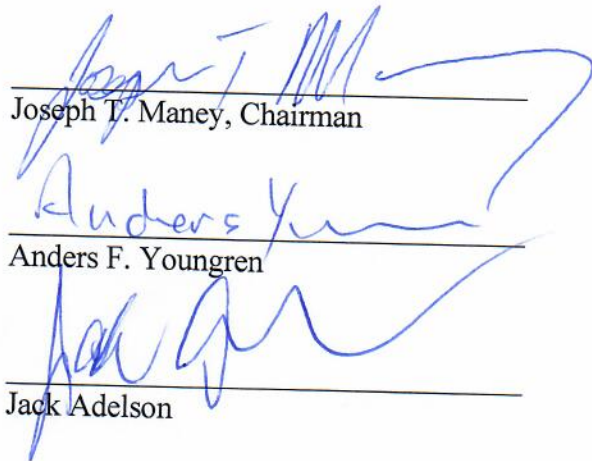 Joseph T M
Joseph T. Maney, Chairman
Anders Y
Anders F. Youngren
Jack A
Jack Adelson